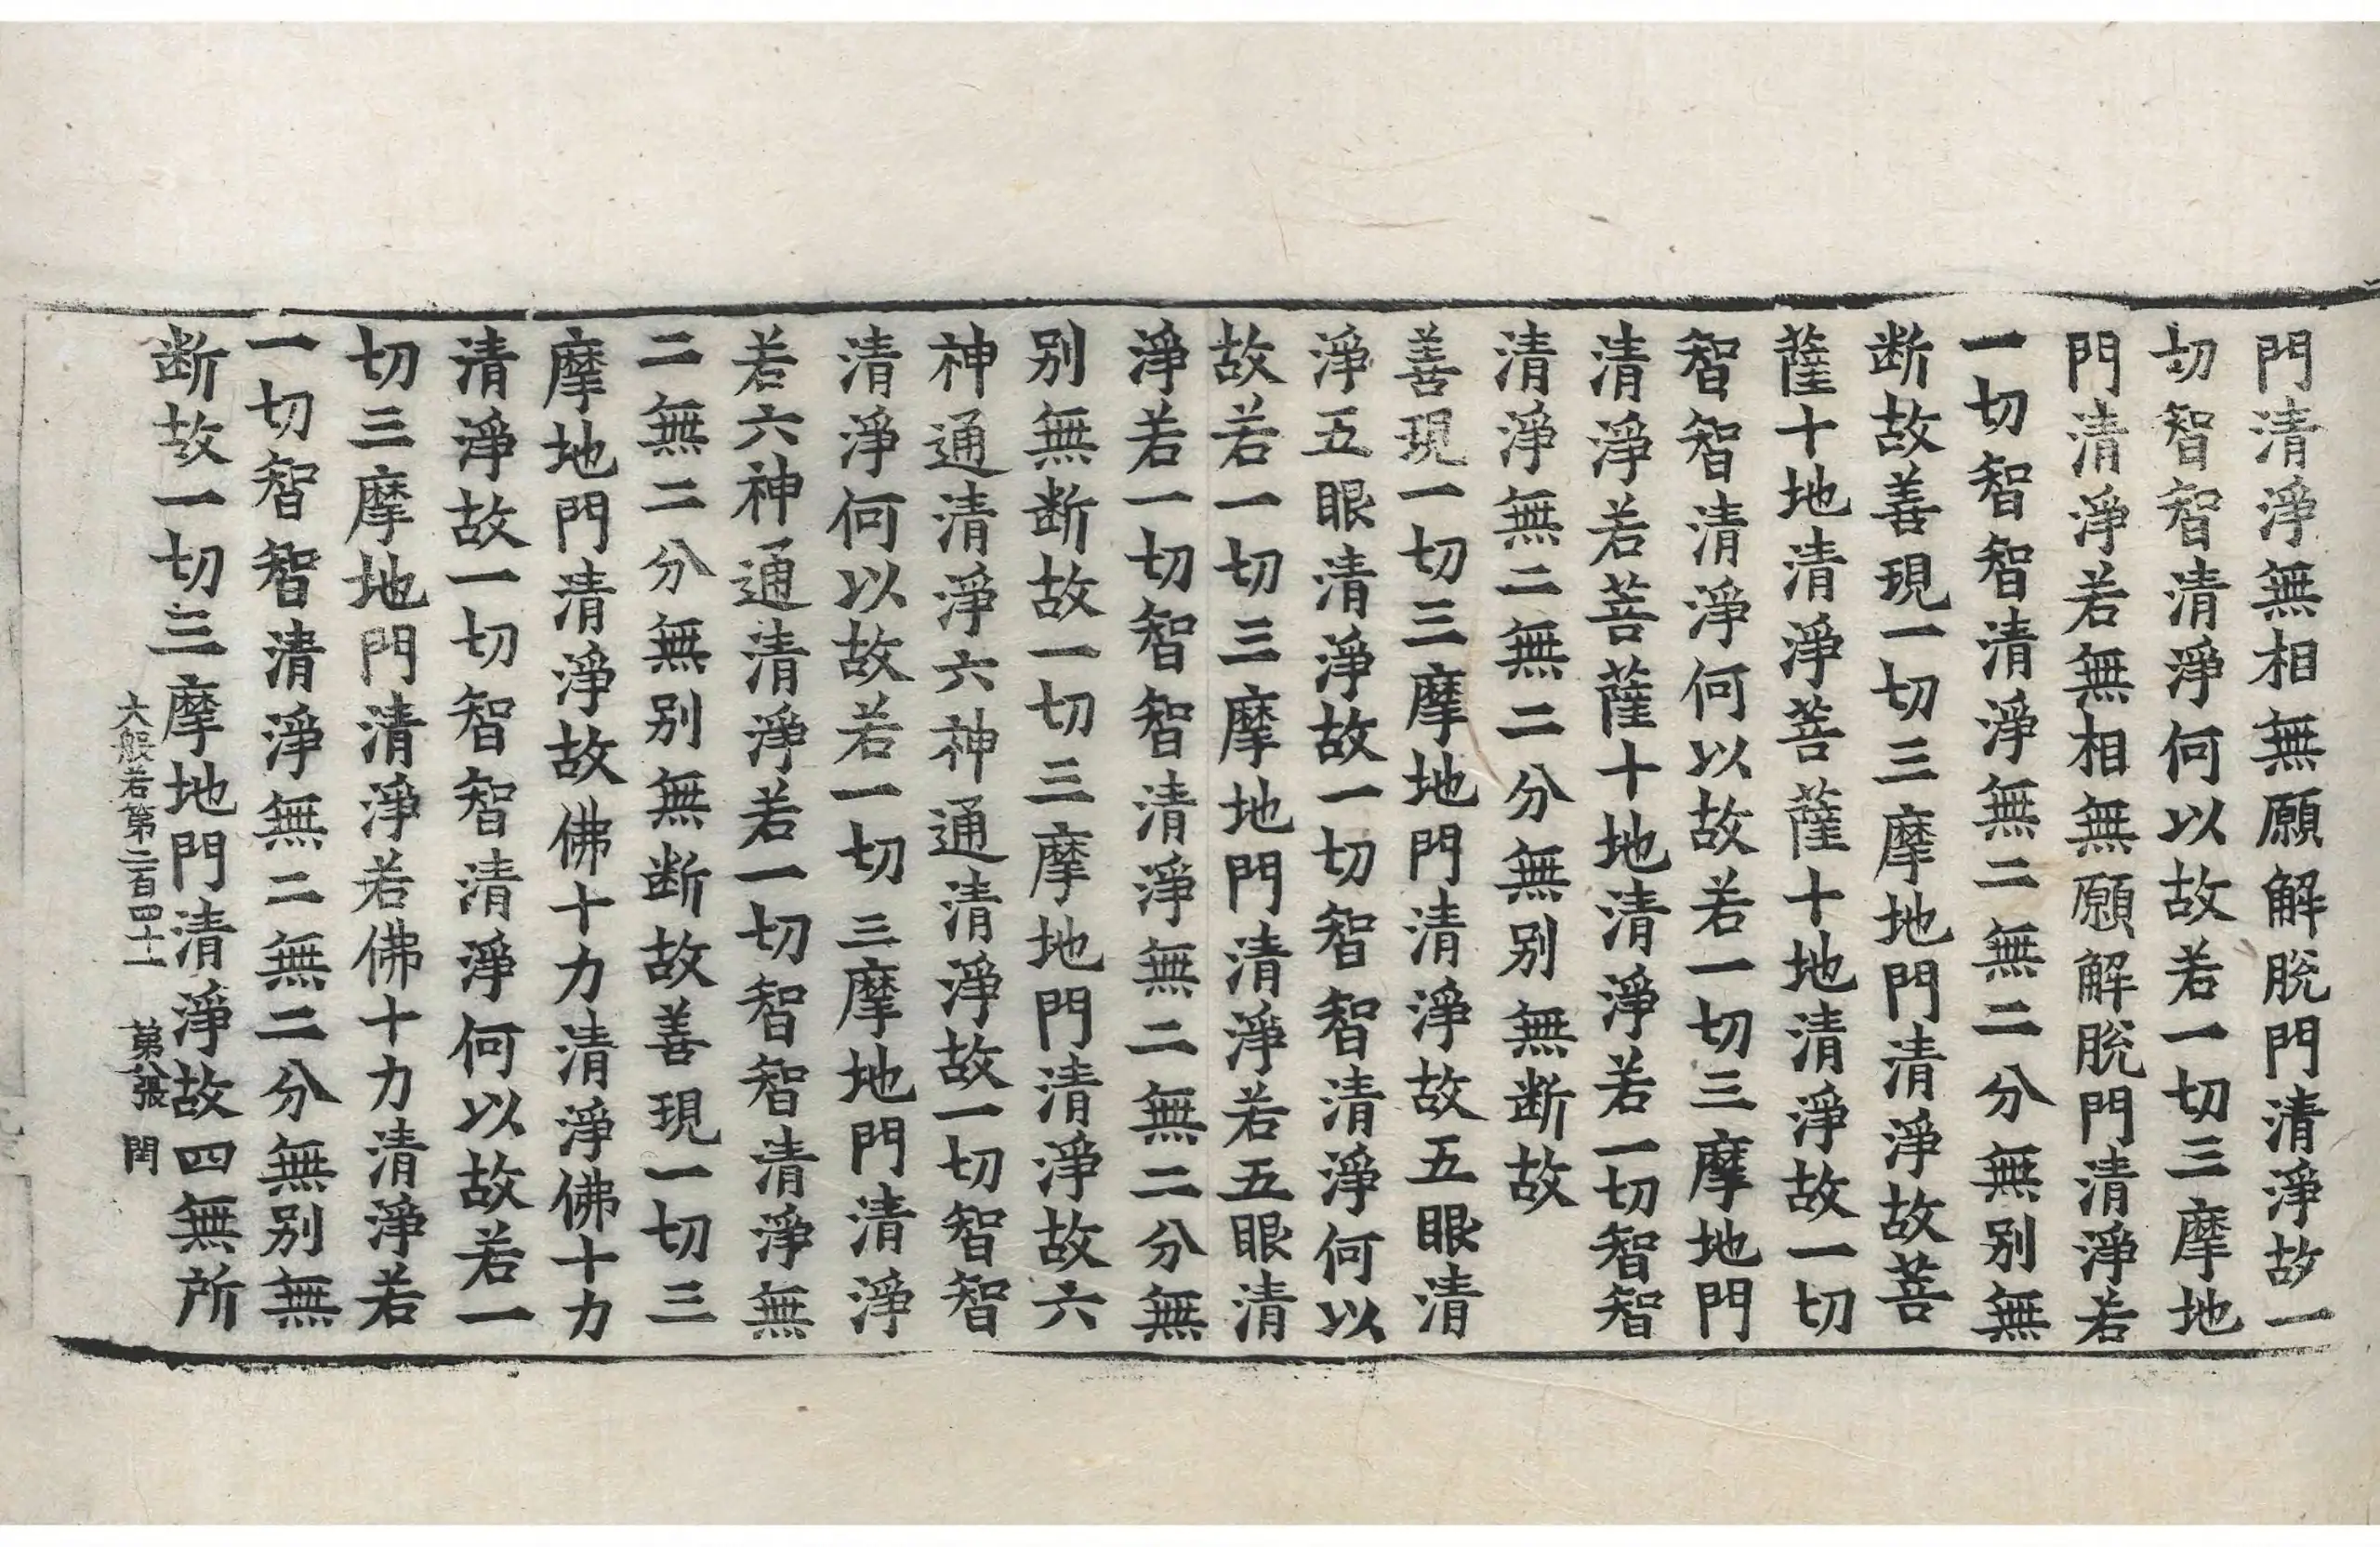 門清淨無相無願解脫門清淨故一
切智智清淨何以故若一切三摩地
門清淨若無相無願解脫門清淨若
一切智智清淨無二無二分無別無
断故善現一切三摩地門清淨故菩
薩十地清淨菩薩十地清淨故一切
智智清淨何以故若一切三摩地門
清淨若菩薩十地清淨若一切智智
清淨無二無二分無別無断故
善現一切三摩地門清淨故五眼清
淨五眼清淨故一切智智清淨何以
故若一切三摩地門清淨若五眼清
淨若一切智智清淨無二無二分無
別無断故一切三摩地門清淨故六
神通清淨六神通清淨故一切智智
清淨何以故若一切三摩地門清淨
若六神通清淨若一切智智清淨無
二無二分無別無断故善現一切三
摩地門清淨故佛十力清淨佛十力
清淨故一切智智清淨何以故若一
切三摩地門清淨若佛十力清淨若
一切智智清淨無二無二分無別無
断故一切三摩地門清淨故四無所
大般若第二百四十一 第八張 閏